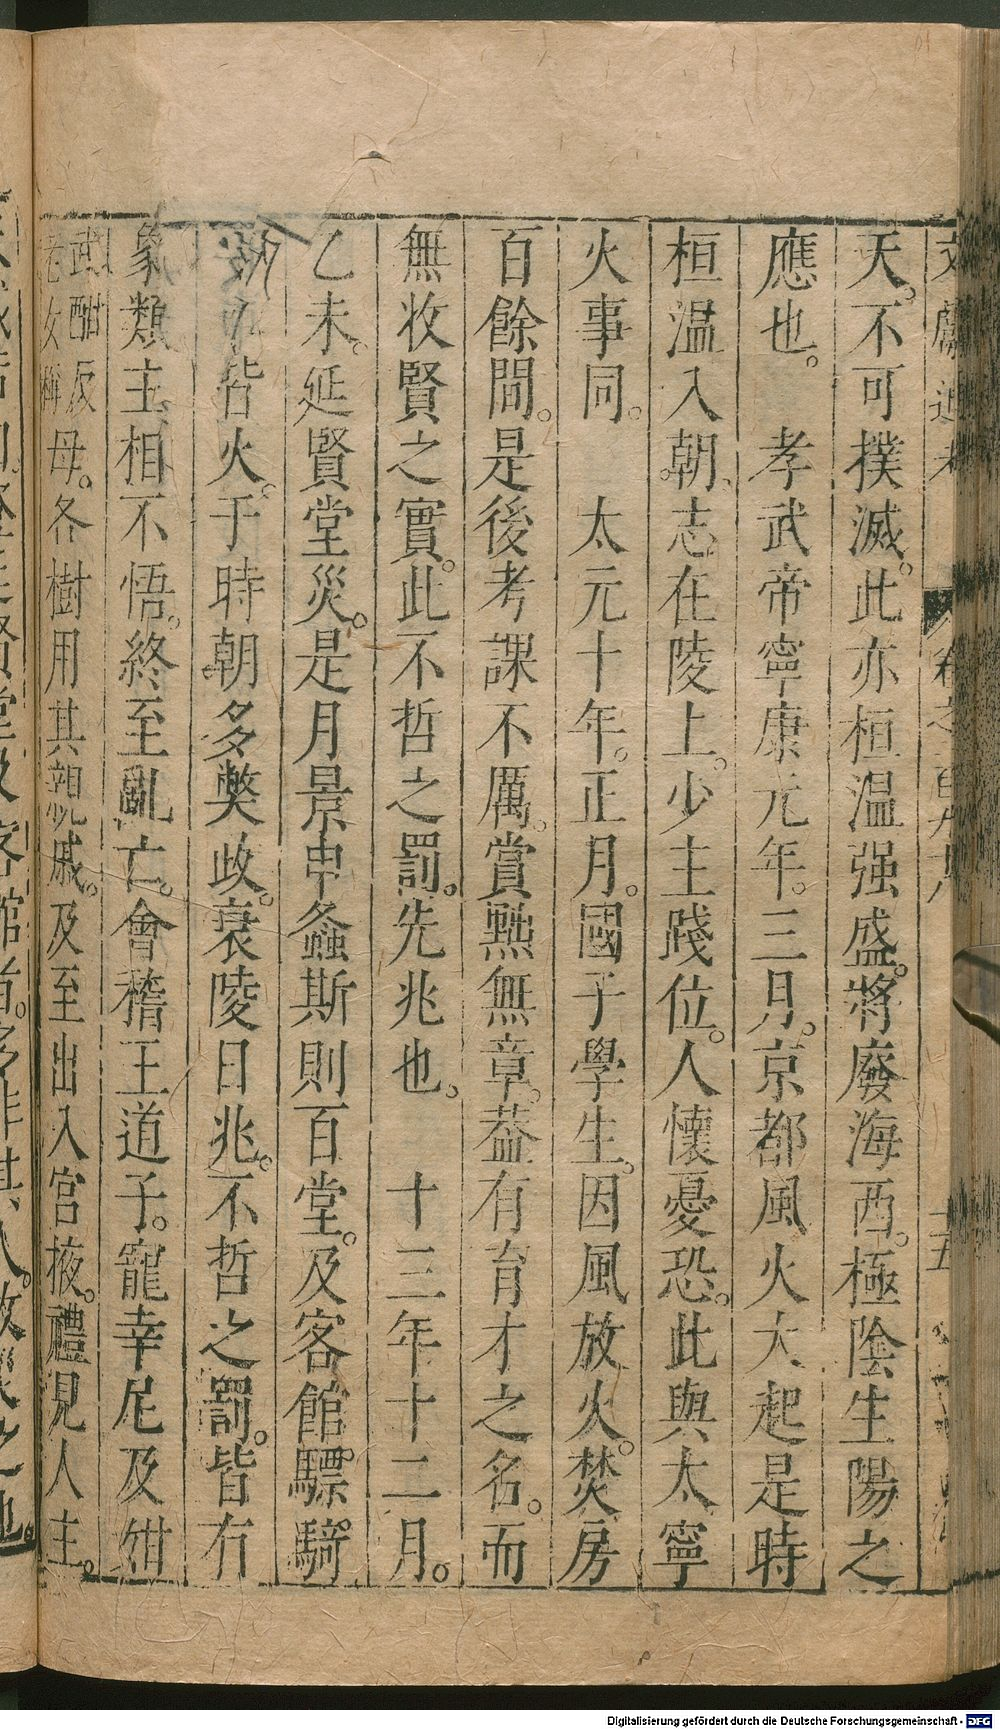 文獻通考 卷之二百九十八 十五
天不可撲滅此亦桓温强盛將廢海西極陰生陽之
應也 孝武帝寧康元年三月京都風火大起是時
桓温入朝志在陵上少主踐位人懷憂恐此與太寧
火事同 太元十年正月國子學生因風放火焚房
百餘間是後考課不厲賞黜無章葢有育才之名而
無收賢之實此不哲之罰先兆也 十三年十二月
乙未延賢堂災是月景申螽斯則百堂及客館驃騎
皆火于時朝多弊政衰陵日兆不哲之罰皆有
象類主相不悟終至亂亡會稽王道子寵幸尼及姏
武酣反
老女稱
母各樹用其親戚及至出入宮掖禮見人主
Digitalisierung gefördert durch die Deutsche Forschungsgemeinschaft - DFG